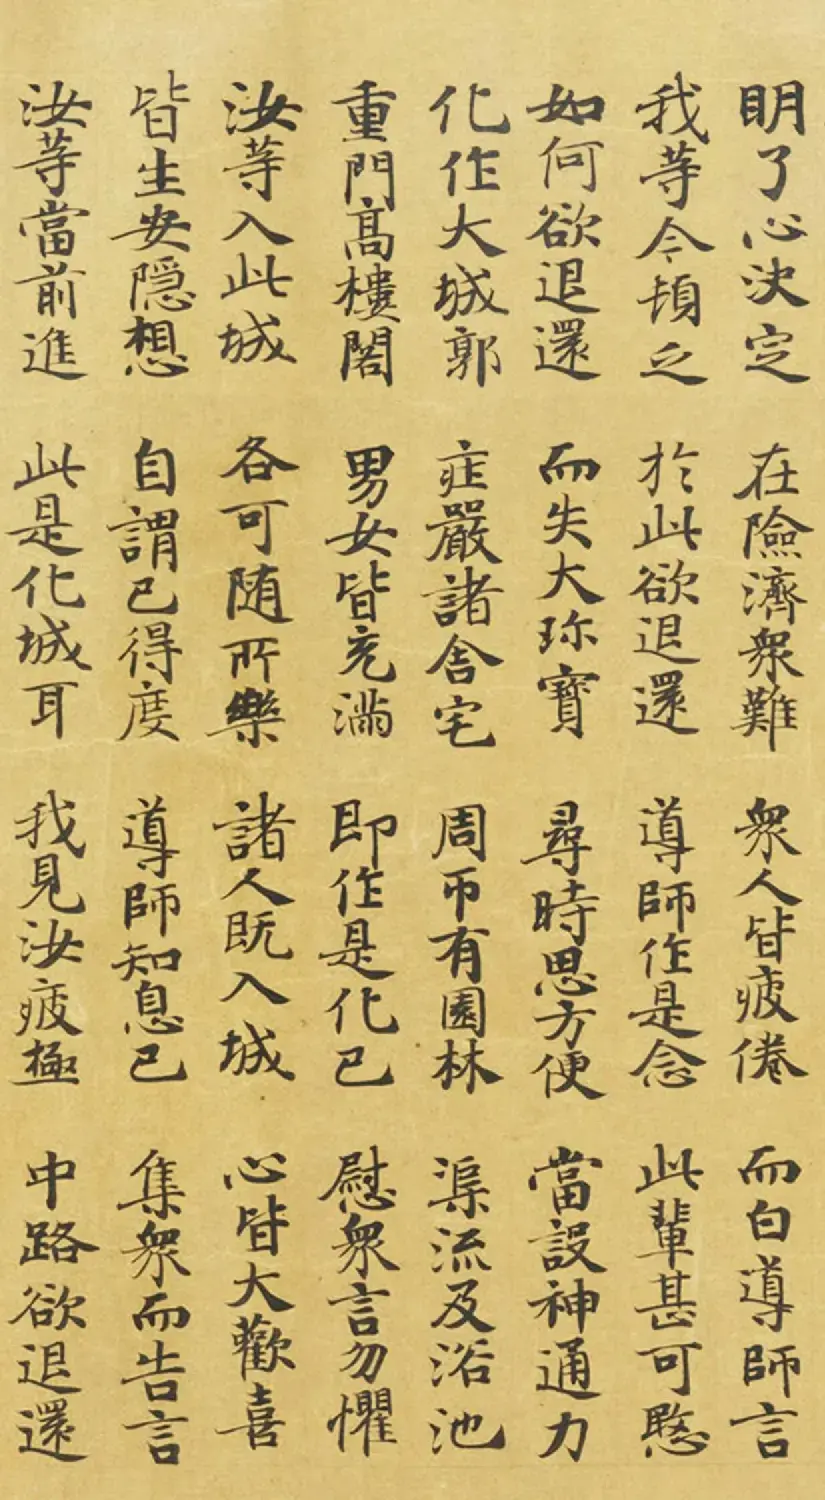 明了心决定 在險濟衆難 衆人皆疲倦 而白導師言
我等今頓乏 於此欲退還 導師作是念 此輩甚可愍
如何欲退還 而失大珎寶 尋時思方便 當設神通力
化作大城郭 庄嚴諸舍宅 周帀有園林 渠流及浴池
重門高樓閣 男女皆充滿 即作是化已 慰衆言勿懼
汝等入此城 各可随所樂 諸人既入城 心皆大歡喜
皆生安隠想 自謂已得度 導師知息已 集衆而告言
汝等當前進 此是化城耳 我見汝疲極 中路欲退還